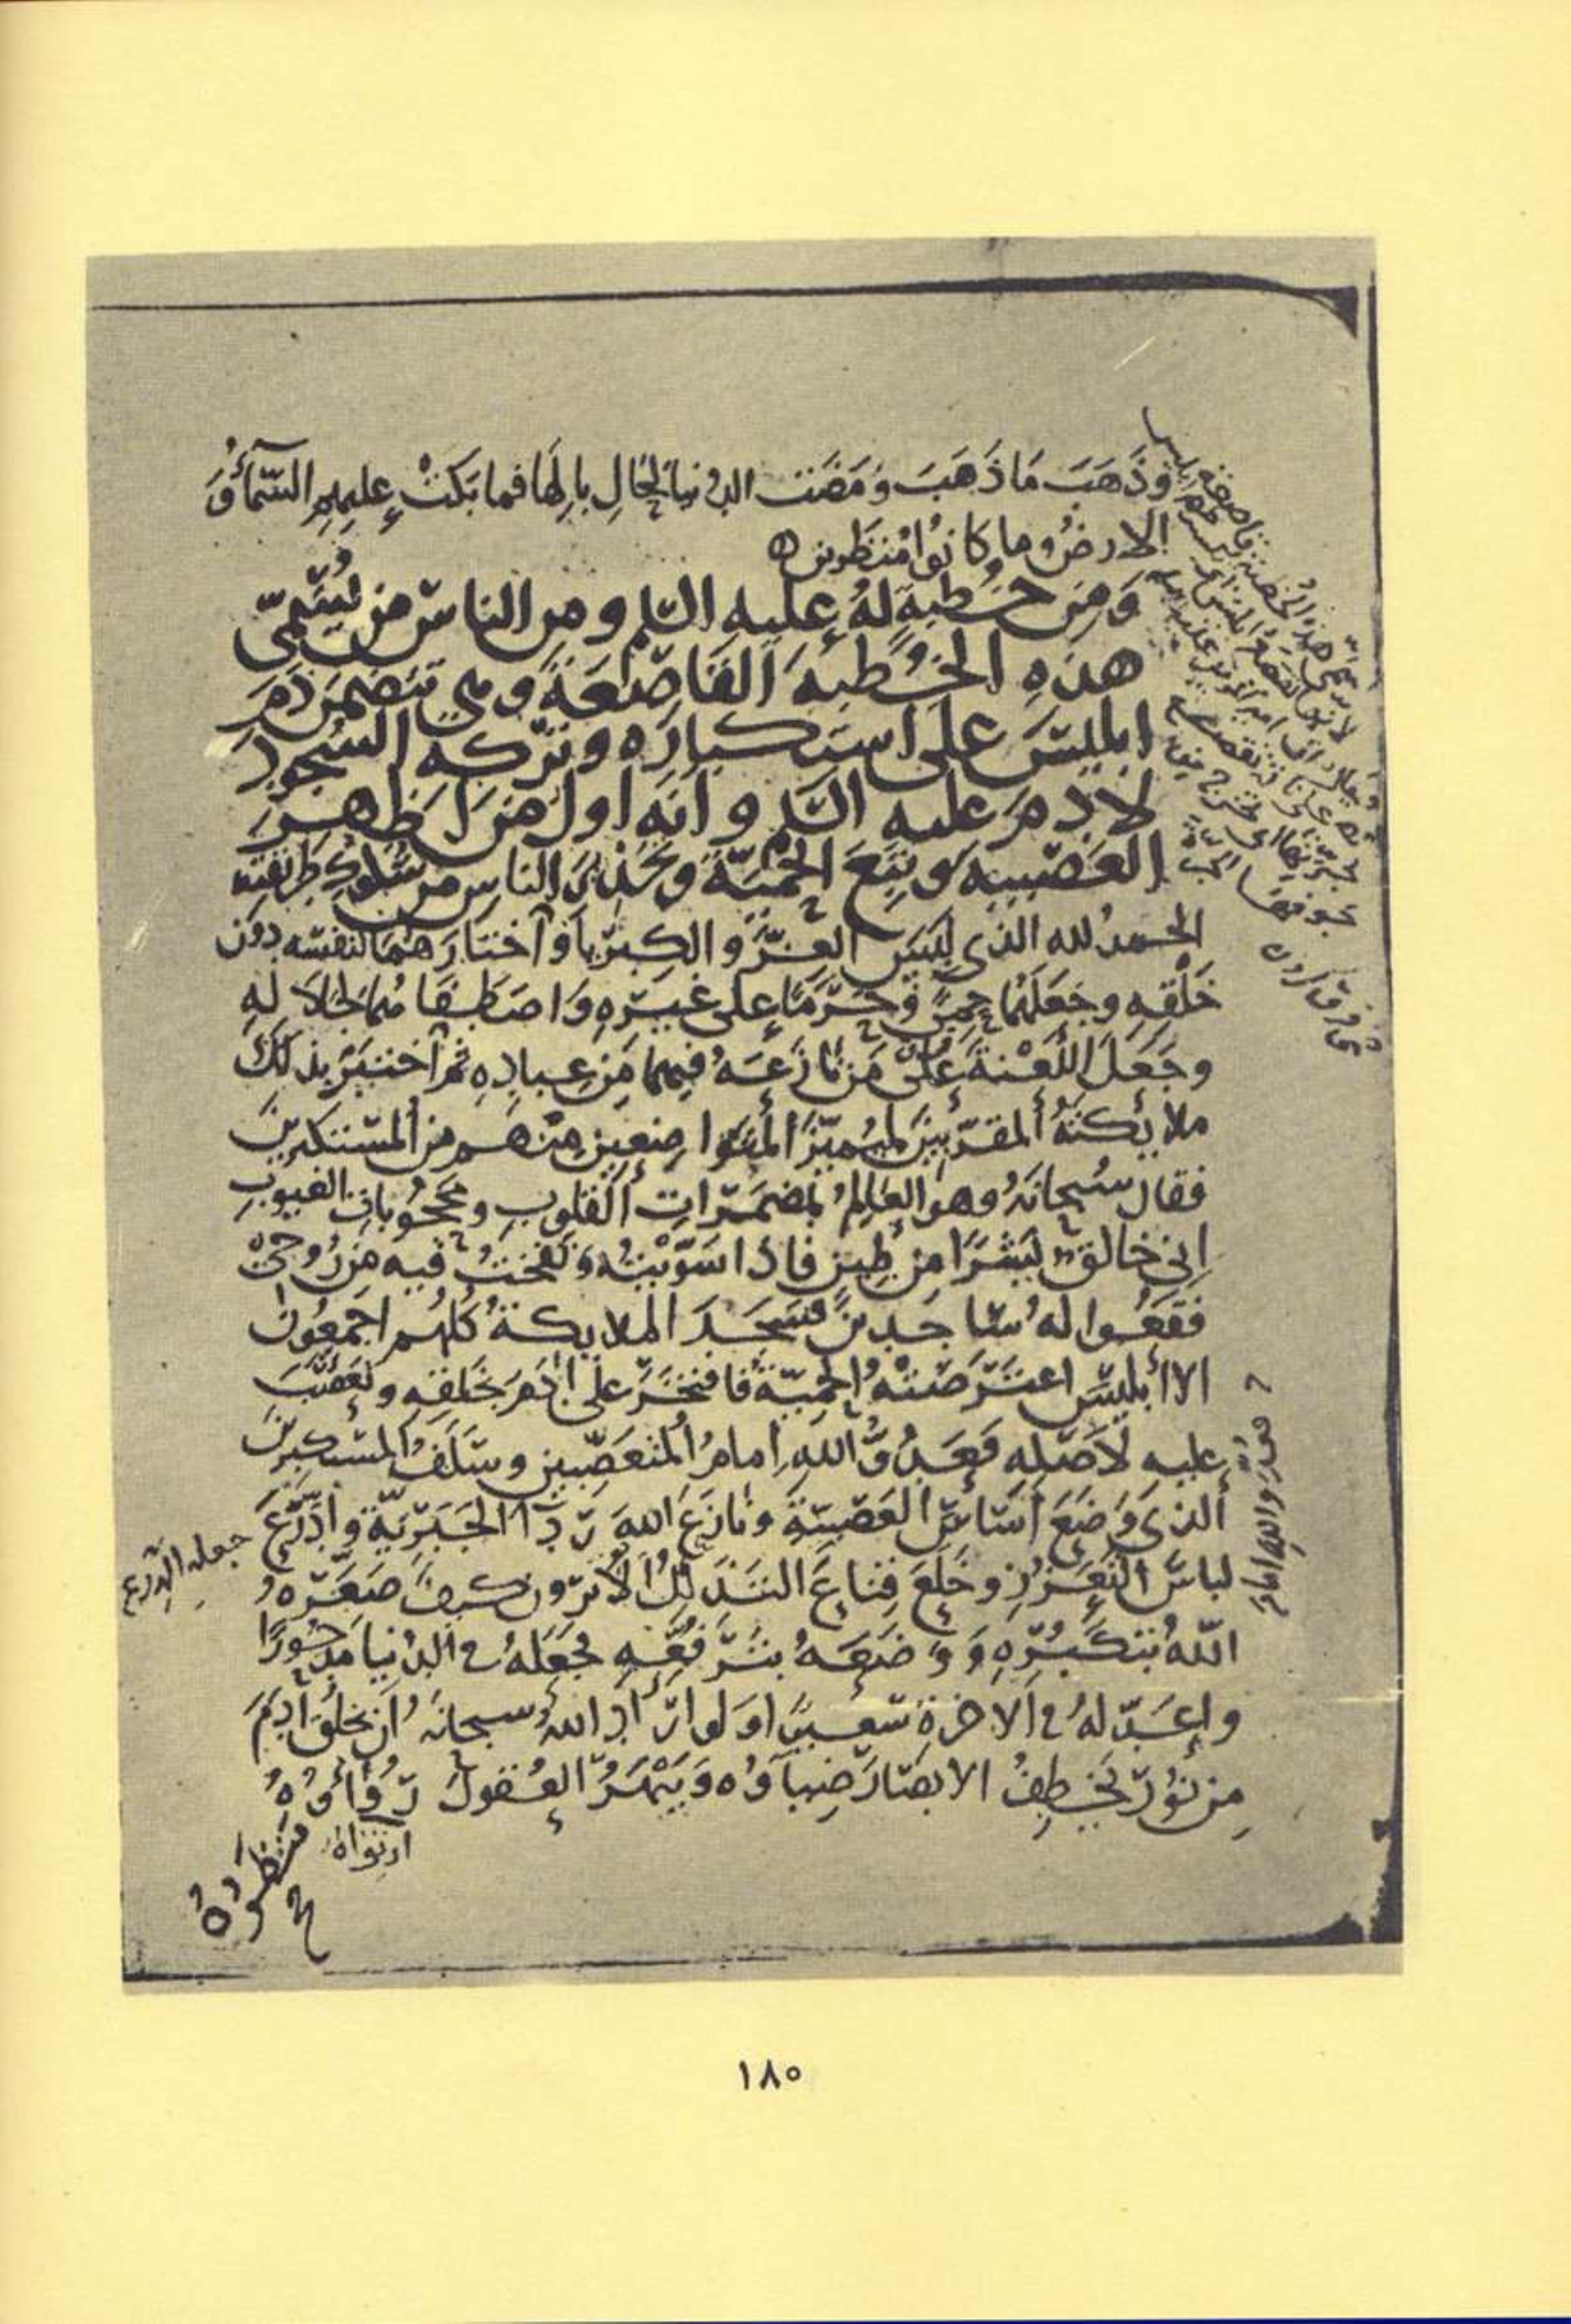 وَذَهَبَ مَا ذَهَبَ وَمَضَت الدُّنيا لِحَالِ بالِهَا فما بَكَتْ عليهم السَّمآءُ وَ
الارضُ وما كانُوا مُنظَرين
وَمِن خُطبةٍ لَهُ عليه السلم ومن الناس من يُسَمِّى
هذهِ الخُطبةَ القَاصِعَةَ وهي تتضمن ذمَّ
ابليسَ على استكباره وتركه السجود
لادمَ عليه السلم وانه اول من اظهر
العَصَبيه وتبع الحَمِيّةَ وتحذير الناس من سلوك طريقته
الحمدُ لله الذى لَبِسَ العِزَّ والكبريآ وآختارَهما لنفسه دون
خَلْقِه وجَعَلَهُما حِمىً وَحَرَمًا على غيرِهِ وَاصطفاهُما لجلاله
وجَعَلَ اللَّعْنةَ على مَن نازَعَهُ فيهما من عبادِه ثم آختبَر بذلك
ملايكتَهُ المقرَّبينَ لِيَميزَ المُتَواضِعين منهم من المستكبرين
فقال سُبحانَهُ وهو العالِمُ بمُضمَراتِ القلوبِ ومحجُوباتِ الغيوبِ
اِنى خالقٌ بَشَرًا من طينٍ فاذا سَوَّيْتُه وَنَفَختُ فيه من رُوحى
فقَعُوا لهُ ساجدينَ فسَجَدَ الملايكةُ كلُّهُم اجمعُون
الا ابليسَ اعترَضَتْهُ الحَمِيّةُ فافتَخَرَ على ادَمَ بخَلقِه وتَعَصَّبَ
عليه لاَصلِه فَعَدُوُّ اللهِ اِمامُ المُتعَصِّبين وسَلَفُ المستكبرين
الذى وَضَعَ اَسَاسَ العَصَبيّةِ ونازَعَ اللهَ رِدَآ الجَبَريّة وادَّرَعَ
لباسَ التعَزُّزِ وخَلَعَ قِناعَ التذَلُّلِ اَلا ترون كيف صَغَّرَهُ
اللهُ بتكبُّرِهِ وَوَضَعَهُ بتَرَفُّعِهِ فجعَلَهُ فى الدُّنيا مدحُورًا
واَعَدَّ لهُ فى الاخرة سَعيرًا ولو اَرادَ اللهُ سبحانَهُ اَن يخلُقَ ادَمَ
مِن نُورٍ يَخطِفُ الابصارَ ضِيآؤُه وَيَبْهَرُ العُقولَ رُوَآؤُهُ
جعله الدرع
مَنظُورُهُ
١٨٠